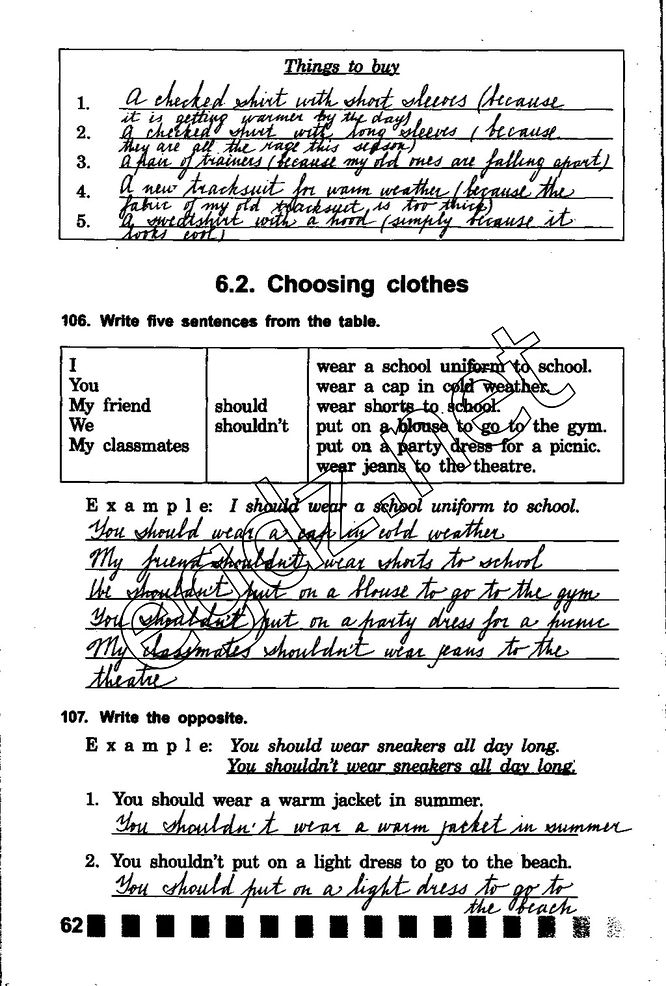 Things to buy
1. A checked shirt with short sleeves (because
it is getting warmer by the day)
2. A checked shirt with long sleeves (because
they are all the rage this season)
3. A pair of trainers (because my old ones are falling apart)
4. A new tracksuit for warm weather (because the
fabric of my old tracksuit is too thick)
5. A sweatshirt with a hood (simply because it
looks cool)
6.2. Choosing clothes
106. Write five sentences from the table.
I wear a school uniform to school.
You wear a cap in cold weather.
My friend should wear shorts to school.
We shouldn't put on a blouse to go to the gym.
My classmates put on a party dress for a picnic.
wear jeans to the theatre.
Example: I should wear a school uniform to school.
You should wear a cap in cold weather
My friend shouldn't wear shorts to school
We shouldn't put on a blouse to go to the gym
You shouldn't put on a party dress for a picnic
My classmates shouldn't wear jeans to the
theatre
107. Write the opposite.
Example: You should wear sneakers all day long.
You shouldn't wear sneakers all day long.
1. You should wear a warm jacket in summer.
You shouldn't wear a warm jacket in summer
2. You shouldn't put on a light dress to go to the beach.
You should put on a light dress to go to
the beach
62
egdz.net